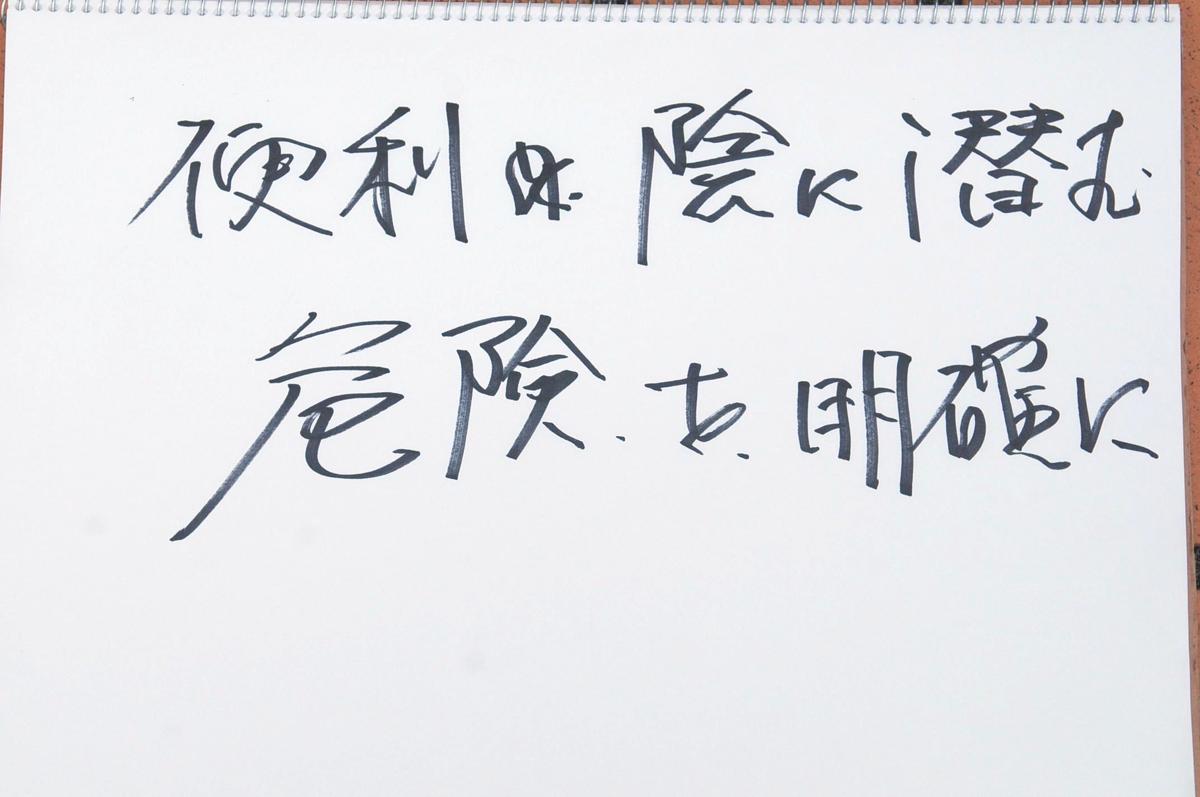 便利な陰に潜む
危険を明確に